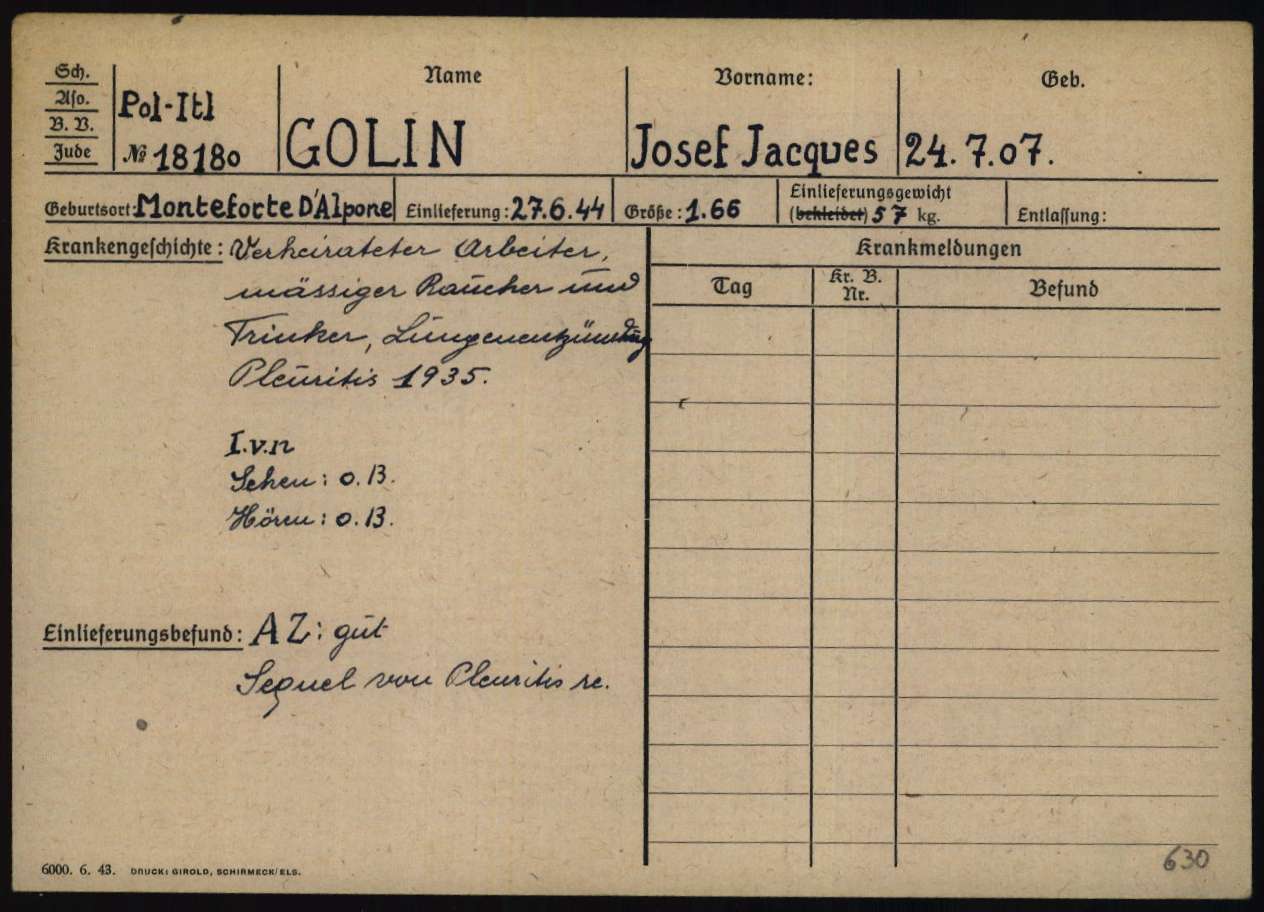 Sch.
Aso.
B. V.
Jude
Pol-Itl
№ 18180
Name
GOLIN
Vorname:
Josef Jacques
Geb.
24. 7. 07.
Geburtsort: Monteforte D'Alpone
Einlieferung: 27.6.44
Größe: 1.66
Einlieferungsgewicht
(bekleidet) 57 kg.
Entlassung:
Krankengeschichte: Verheirateter Arbeiter,
mässiger Raucher und
Trinker, Lungenentzündung
Pleuritis 1935.
I.v.n
Sehen: o.B.
Hören: o.B.
Einlieferungsbefund: AZ: gut
Sequel von Pleuritis re.
Krankmeldungen
Tag
Kr. B.
Nr.
Befund
6000. 6. 43. DRUCK: GIROLD, SCHIRMECK/ELS.
630